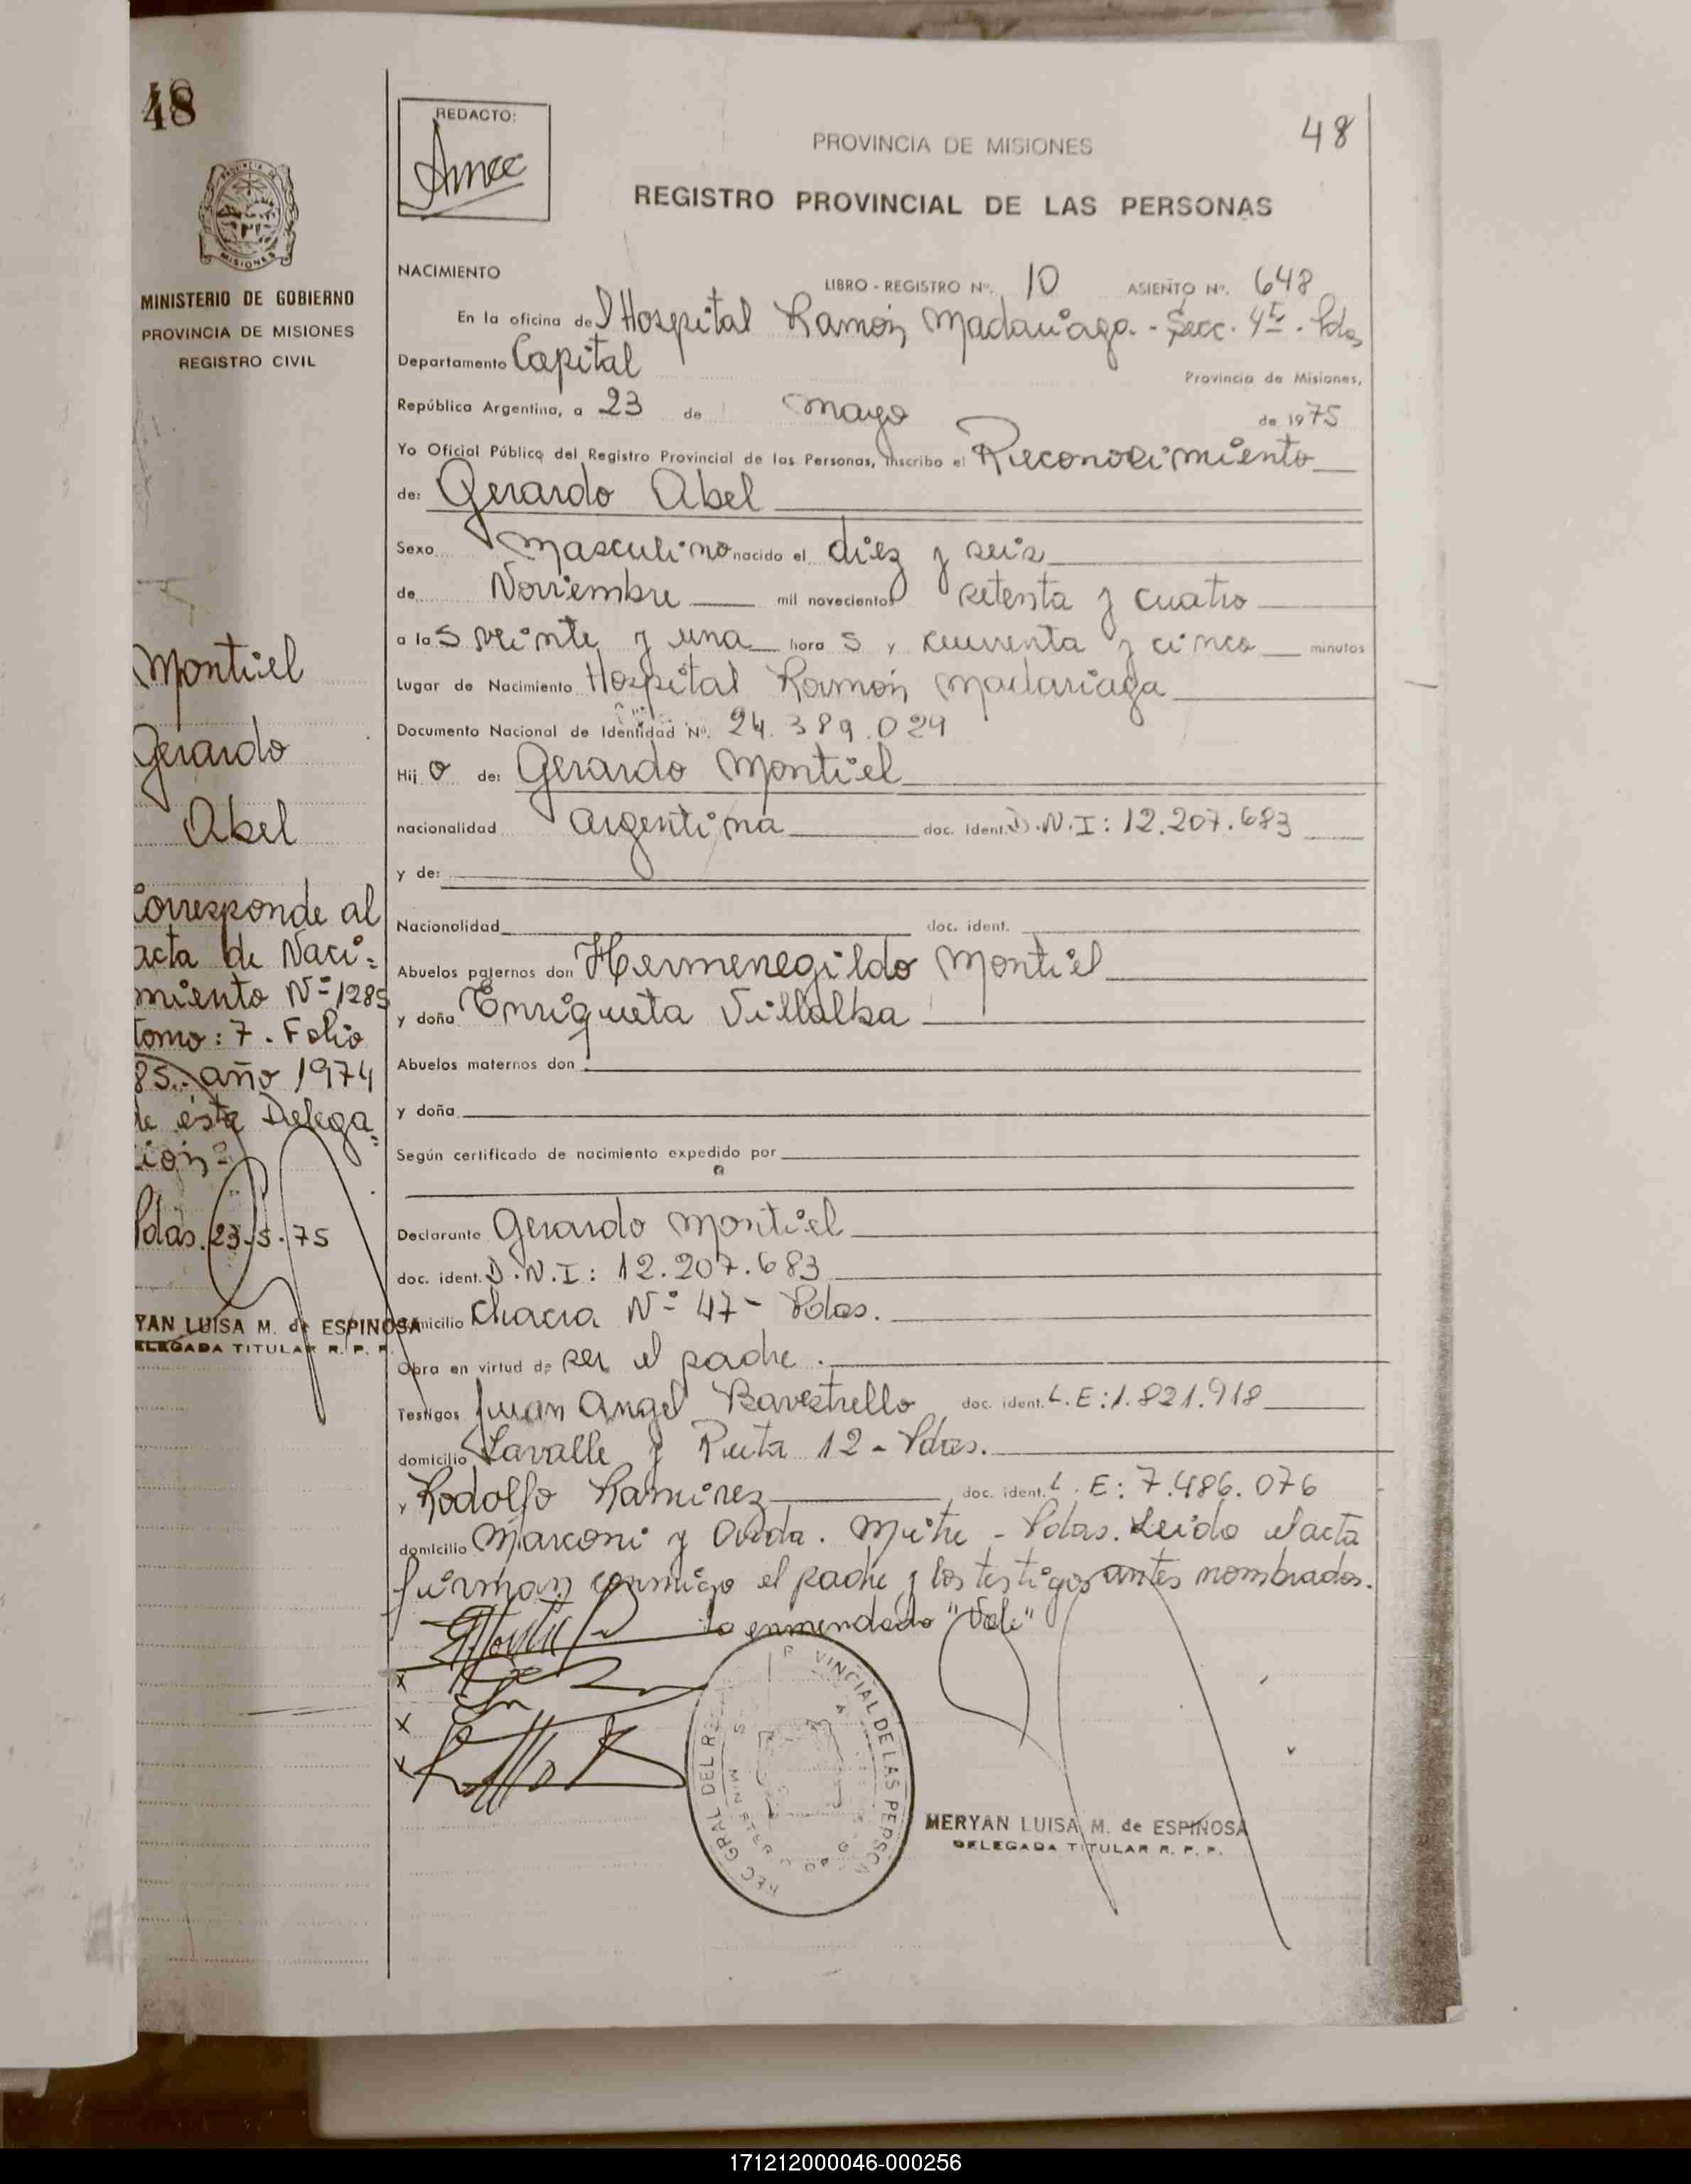 48
MINISTERIO DE GOBIERNO
PROVINCIA DE MISIONES
REGISTRO CIVIL
Montiel
Gerardo
Abel
Corresponde al
acta de Naci=
miento Nº 1285
tomo: 7. Folio
85. año 1974
de ésta Delega=
ión=
Pdas. 23-5-75
YAN LUISA M. de ESPINOSA
ELEGADA TITULAR R. P. P.
REDACTO:
PROVINCIA DE MISIONES
48
REGISTRO PROVINCIAL DE LAS PERSONAS
NACIMIENTO
LIBRO - REGISTRO Nº. 10 ASIENTO Nº. 648
En la oficina del Hospital Ramón Madariaga - Secc. 4ta. Pdas
Departamento Capital
Provincia de Misiones,
República Argentina, a 23 de mayo de 1975
Yo Oficial Público del Registro Provincial de las Personas, inscribo el Reconocimiento
de: Gerardo Abel
Sexo Masculino nacido el diez y seis
de Noviembre mil novecientos setenta y cuatro
a las veinte y una horas y cuarenta y cinco minutos
Lugar de Nacimiento Hospital Ramón Madariaga
Documento Nacional de Identidad Nº. 24.389.029
Hijo de: Gerardo Montiel
nacionalidad argentina doc. Ident. D.N.I: 12.207.683
y de:
Nacionalidad doc. ident.
Abuelos paternos don Hermenegildo Montiel
y doña Enriqueta Villalba
Abuelos maternos don
y doña
Según certificado de nacimiento expedido por
Declarante Gerardo Montiel
doc. ident. D.N.I: 12.207.683
domicilio Chacra Nº 47 - Pdas.
Obra en virtud de ser el padre.
Testigos Juan Angel Bavestrello doc. ident. L.E: 1.821.918
domicilio Lavalle y Ruta 12 - Pdas.
y Rodolfo Ramirez doc. ident. L.E: 7.486.076
domicilio Marconi y Avda. Mitre - Pdas. Leído el acta
firman conmigo el padre y los testigos antes nombrados.
lo enmendado "Vale"
MERYAN LUISA M. de ESPINOSA
DELEGADA TITULAR R. P. P.
171212000046-000256